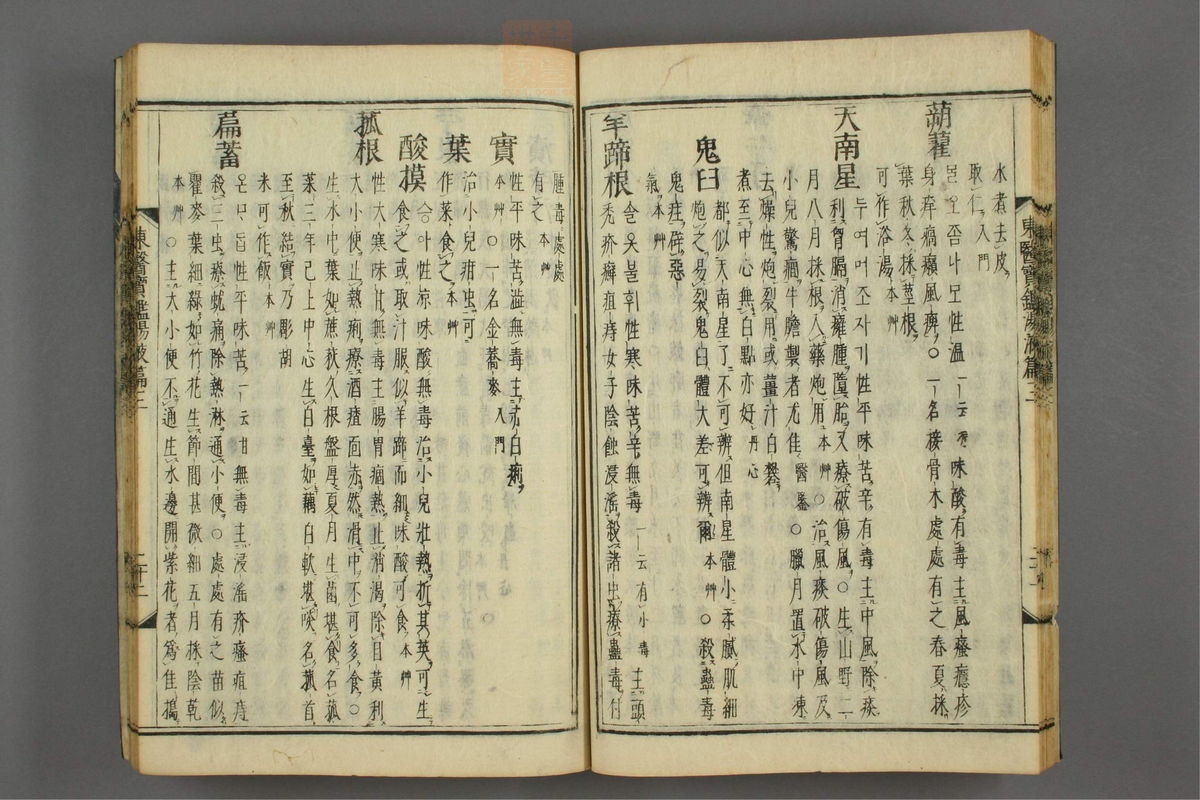 水煮去皮
取仁入門
蒴藋
믈오좀나모性溫一云凉味酸有毒主風瘙癮疹
身痒瘑癩風痺○一名接骨木處處有之春夏採
葉秋冬採莖根
可作浴湯本艸
天南星
두여머조자기性平味苦辛有毒主中風除痰
利胷膈消癰腫墮胎又療破傷風○生山野二
月八月採根入藥炮用本艸○治風痰破傷風及
小兒驚癎牛膽製者尤佳醫鑑○臘月置水中凍
去燥性炮裂用或薑汁白礬
煮至中心無白點亦好丹心
鬼臼
都似天南星了不可辨但南星體小柔膩肌細
炮之易裂鬼臼體大差可辨爾本艸○殺蠱毒
鬼疰辟惡
氣本艸
羊蹄根
솔옷불휘性寒味苦辛無毒一云有小毒主頭
禿疥癬疽痔女子陰蝕浸淫殺諸虫療蠱毒付
東醫寶鑑湯液篇三
腫毒處處
有之本艸
實
性平味苦澁無毒主赤白痢
本艸○一名金蕎麥入門○
葉
治小兒疳虫可
作菜食之本艸
酸摸
승아性凉味酸無毒治小兒壯熱折其英可生
食之或取汁服似羊蹄而細味酸可食本艸
菰根
性大寒味甘無毒主腸胃痼熱止消渴除目黃利
大小便止熱痢療酒齄面赤然滑中不可多食○
生水中葉如蔗荻久根盤厚夏月生菌堪食名菰
菜三年已上中心生白臺如藕白軟堪啖名菰首
至秋結實乃彫胡
米可作飯本艸
萹蓄
온ᄆᆞ듭性平味苦一云甘無毒主浸淫疥瘙疽痔
殺三虫療蚘痛除熱淋通小便○處處有之苗似
瞿麥葉細綠如竹花生節間甚微細五月採陰乾
本艸○主大小便不通生水邊開紫花者爲佳搗
東醫寶鑑湯液篇三
二十二